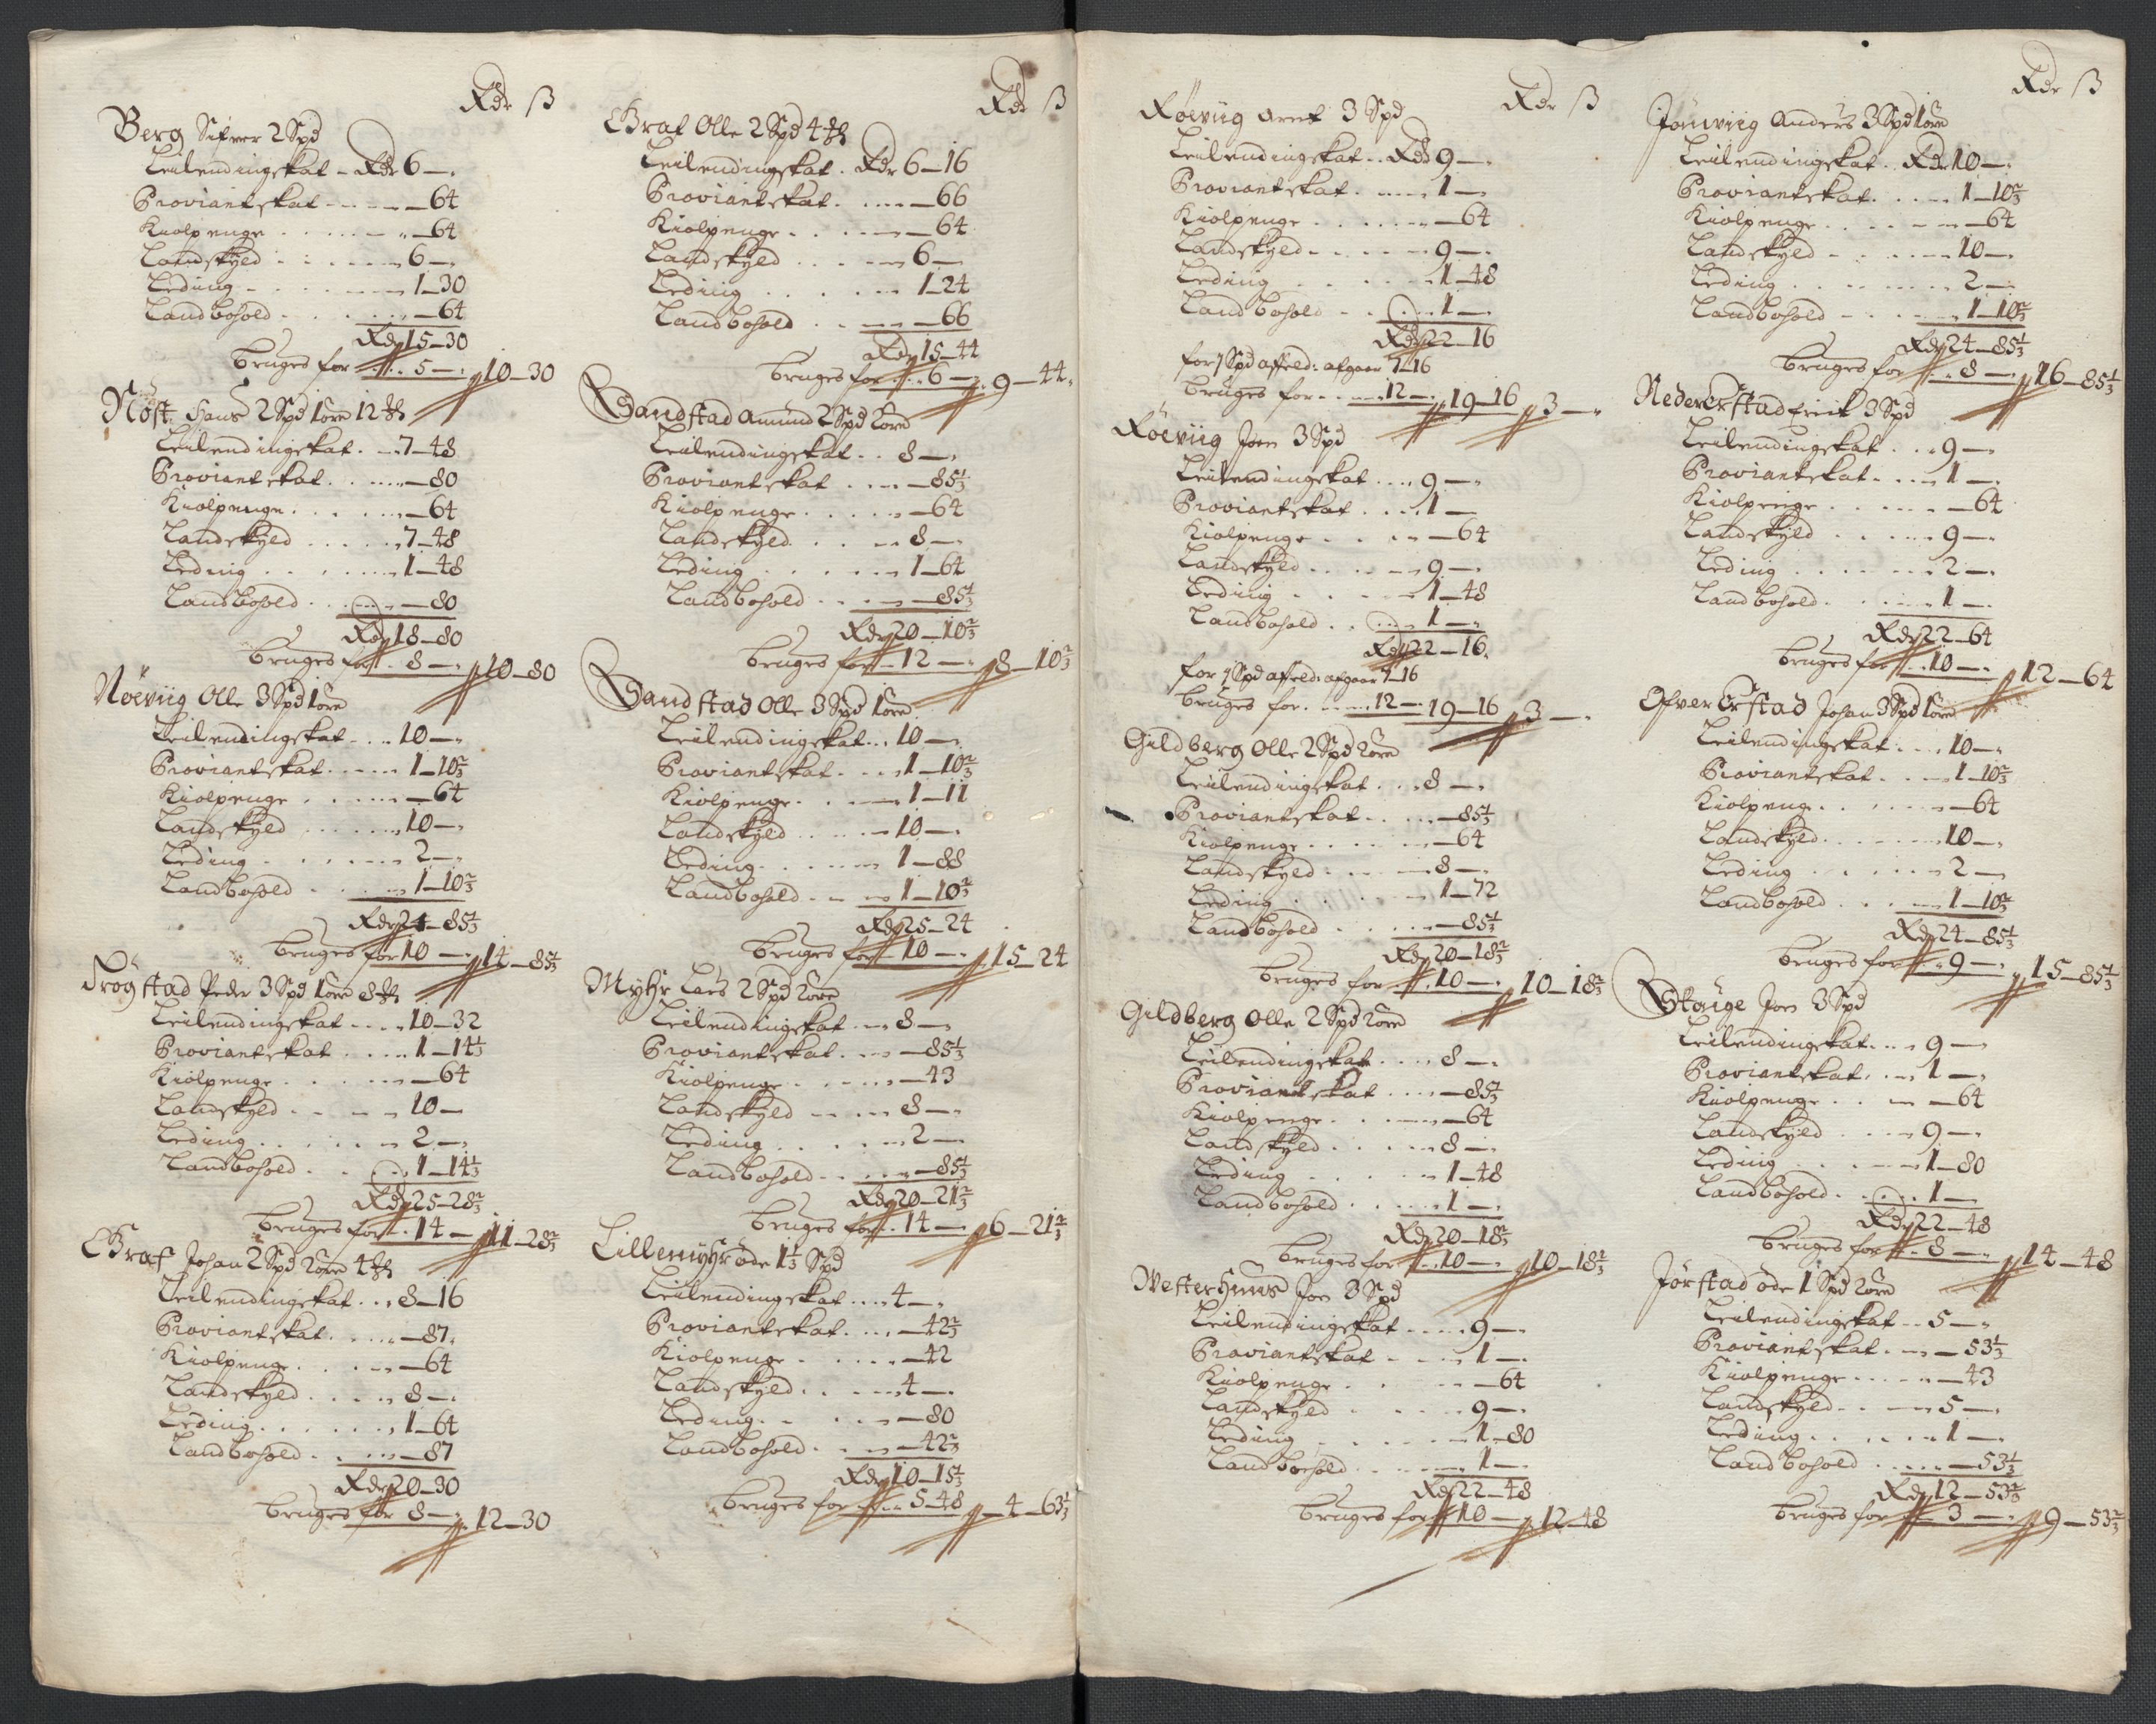 Rdr ß
Berg Sifver 2 Spd
Leilendingskat - Rdr 6 —
Proviantskat — 64
Kiolpenge — 64
Landskyld 6 —
Leding 1 — 30
Landbohold — 64
Rdr 15 — 30
bruges for 5 — 10 — 30
Nøst Hans 2 Spd 1 øre 12 ℔
Leilendingskat 7 — 48
Proviantskat — 80
Kiolpenge — 64
Landskyld 7 — 48
Leding 1 — 48
Landbohold — 80
Rdr 18 — 80
bruges for 8 — 10 — 80
Nøeviig Olle 3 Spd 1 øre
Leilendingskat 10 —
Proviantskat 1 — 10⅔
Kiolpenge — 64
Landskyld 10 —
Leding 2 —
Landbohold 1 — 10⅔
Rdr 24 — 85⅓
bruges for 10 — 14 — 85⅓
Frøgstad Peder 3 Spd 1 øre 8 ℔
Leilendingskat 10 — 32
Proviantskat 1 — 14⅓
Kiolpenge — 64
Landskyld 10 —
Leding 2 —
Landbohold 1 — 14⅓
Rdr 25 — 28⅔
bruges for 14 — 11 — 28⅔
Graf Johan 2 Spd 2 øre 4 ℔
Leilendingskat 8 — 16
Proviantskat — 87
Kiolpenge — 64
Landskyld 8 —
Leding 1 — 64
Landbohold — 87
Rdr 20 — 30
bruges for 8 — 12 — 30
Rdr ß
Graf Olle 2 Spd 4 ℔
Leilendingskat Rdr 6 — 16
Proviantskat — 66
Kiolpenge — 64
Landskyld 6 —
Leding 1 — 24
Landbohold — 66
Rdr 15 — 44
bruges for 6 — 9 — 44
Sandstad Amund 2 Spd 2 øre
Leilendingskat 8 —
Proviantskat — 85⅓
Kiolpenge — 64
Landskyld 8 —
Leding 1 — 64
Landbohold — 85⅓
Rdr 20 — 10⅔
bruges for 12 — 8 — 10⅔
Sandstad Olle 3 Spd 1 øre
Leilendingskat 10 —
Proviantskat 1 — 10⅔
Kiolpenge 1 — 11
Landskyld 10 —
Leding 1 — 88
Landbohold 1 — 10⅔
Rdr 25 — 24
bruges for 10 — 15 — 24
Myhr Lars 2 Spd 2 øre
Leilendingskat 8 —
Proviantskat — 85⅓
Kiolpenge — 43
Landskyld 8 —
Leding 2 —
Landbohold — 85⅓
Rdr 20 — 21⅔
bruges for 14 — 6 — 21⅔
Lillemyhr øde 1⅓ Spd
Leilendingskat 4 —
Proviantskat — 42⅔
Kiolpenge — 42
Landskyld 4 —
Leding — 80
Landbohold — 42⅔
Rdr 10 — 15⅓
bruges for 5 — 48 — 4 — 63⅓
Rdr ß
Røeviig Arent 3 Spd
Leilendingskat Rdr 9 —
Proviantskat 1 —
Kiolpenge — 64
Landskyld 9 —
Leding 1 — 48
Landbohold 1 —
Rdr 22 — 16
for 1 Spd affeld: afgaar 7 — 16
bruges for 12 — 19 — 16 3 —
Røeviig Joen 3 Spd
Leilendingskat 9 —
Proviantskat 1 —
Kiolpenge — 64
Landskyld 9 —
Leding 1 — 48
Landbohold 1 —
Rdr 22 — 16
for 1 Spd affeld: afgaar 7 — 16
bruges for 12 — 19 — 16 3 —
Gildberg Olle 2 Spd 2 øre
Leilendingskat 8 —
Proviantskat — 85⅓
Kiolpenge — 64
Landskyld 8 —
Leding 1 — 72
Landbohold — 85⅓
Rdr 20 — 18⅔
bruges for 10 — 10 — 18⅔
Gildberg Olle 2 Spd 2 øre
Leilendingskat 8 —
Proviantskat — 85⅓
Kiolpenge — 64
Landskyld 8 —
Leding 1 — 48
Landbohold 1 —
Rdr 20 — 18⅔
bruges for 10 — 10 — 18⅔
Westerhuus Joen 3 Spd
Leilendingskat 9 —
Proviantskat 1 —
Kiolpenge — 64
Landskyld 9 —
Leding 1 — 80
Landbohold 1 —
Rdr 22 — 48
bruges for 10 — 12 — 48
Rdr ß
Jønviig Anders 3 Spd 1 øre
Leilendingskat Rdr 10 —
Proviantskat 1 — 10⅔
Kiolpenge — 64
Landskyld 10 —
Leding 2 —
Landbohold 1 — 10⅔
Rdr 24 — 85⅓
bruges for 8 — 16 — 85⅓
Neder Erstad Erich 3 Spd
Leilendingskat 9 —
Proviantskat 1 —
Kiolpenge — 64
Landskyld 9 —
Leding 2 —
Landbohold 1 —
Rdr 22 — 64
bruges for 10 — 12 — 64
Ofver Erstad Johan 3 Spd 1 øre
Leilendingskat 10 —
Proviantskat 1 — 10⅔
Kiolpeng — 64
Landskyld 10 —
Leding 2 —
Landbohold 1 — 10⅔
Rdr 24 — 85⅓
bruges for 9 — 15 — 85⅓
Skaige Joen 3 Spd
Leilendingskat 9 —
Proviantskat 1 —
Kiolpenge — 64
Landskyld 9 —
Leding 1 — 80
Landbohold 1 —
Rdr 22 — 48
bruges for 8 — 14 — 48
Jørstad øde 1 Spd 2 øre
Leilendingskat 5 —
Proviantskat — 53⅓
Kiolpenge — 43
Landskyld 5 —
Leding 1 —
Landbohold — 53⅓
Rdr 12 — 53⅔
bruges for 3 — 9 — 53⅔